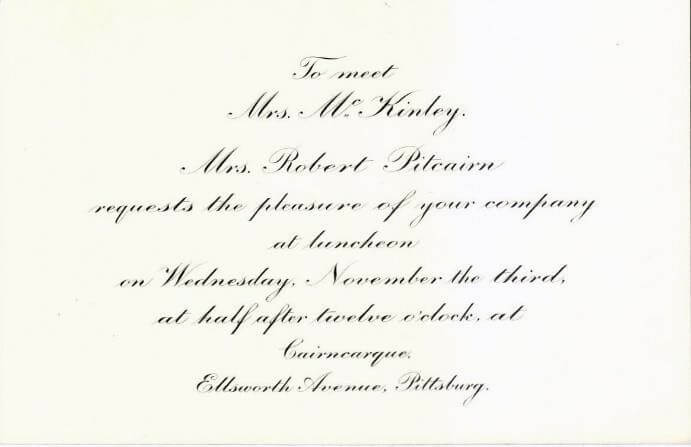 To meet
Mrs. McKinley.
Mrs. Robert Pitcairn
requests the pleasure of your company
at luncheon
on Wednesday, November the third,
at half after twelve o'clock, at
Cairncarque,
Ellsworth Avenue, Pittsburg.